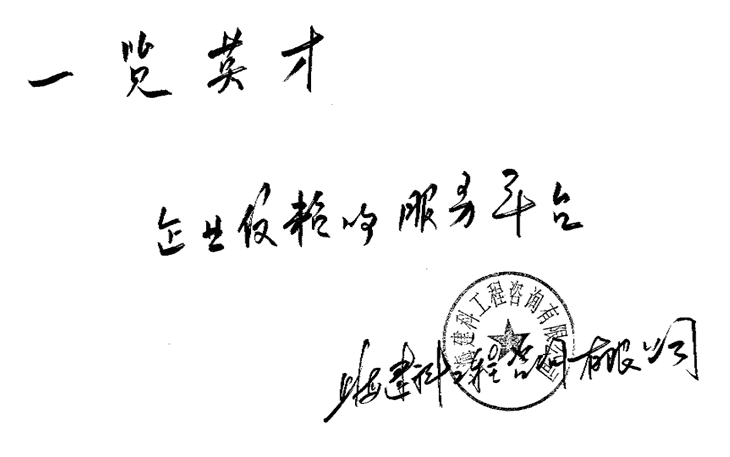 一览英才
企业信赖的服务平台
上海建科工程咨询有限公司
上海建科工程咨询有限公司